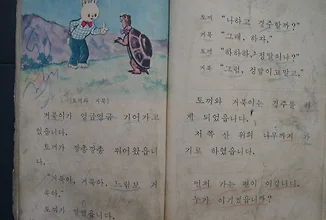 (토끼와 거북)
거북이가 엉금엉금 기어가고
있었습니다.
토끼가 깡충깡충 뛰어왔습니
다.
"거북아, 거북아, 느림보 거
북아."
토끼가 말했습니다.
토끼 "나하고 경주할까?"
거북 "그래, 하자."
토끼 "하하하, 정말이냐?"
거북 "그럼, 정말이고말고."
토끼와 거북이는 경주를 하
게 되었습니다.
저쪽 산 위의 나무까지 가
기로 하였습니다.
먼저 가는 편이 이깁니다.
누가 이기겠습니까?